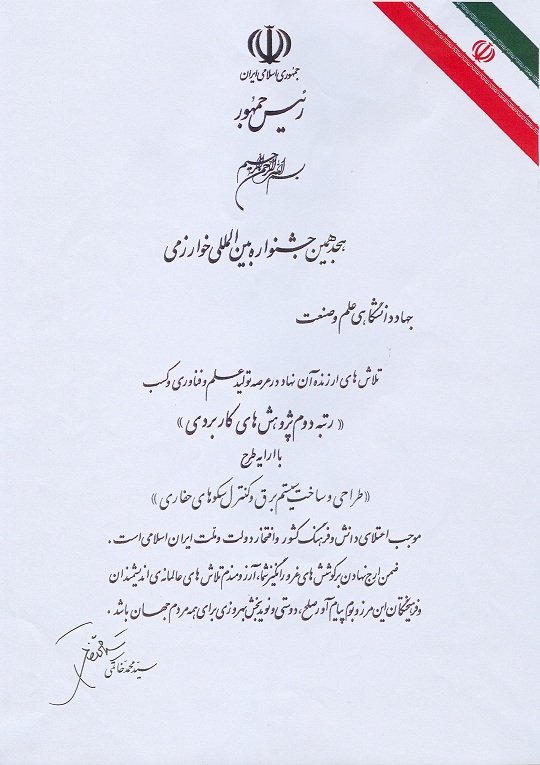 جمهوری اسلامی ایران
رئیس جمهور
بسم الله الرحمن الرحیم
هجدهمین جشنواره بین المللی خوارزمی
جهاد دانشگاهی علم و صنعت
تلاش های ارزنده آن نهاد در عرصه تولید علم و فناوری و کسب
« رتبه دوم پژوهش های کاربردی »
با ارایه طرح
« طراحی و ساخت سیستم برق و کنترل سکوهای حفاری »
موجب اعتلای دانش و فرهنگ کشور و افتخار دولت و ملت ایران اسلامی است .
ضمن ارج نهادن بر کوشش های غرورانگیز شما، آرزومندم تلاش های عالمانه ی اندیشمندان
و فرهیختگان این مرز و بوم پیام آور صلح، دوستی و نوید بخش بهروزی برای همه مردم جهان باشد .
سید محمد خاتمی